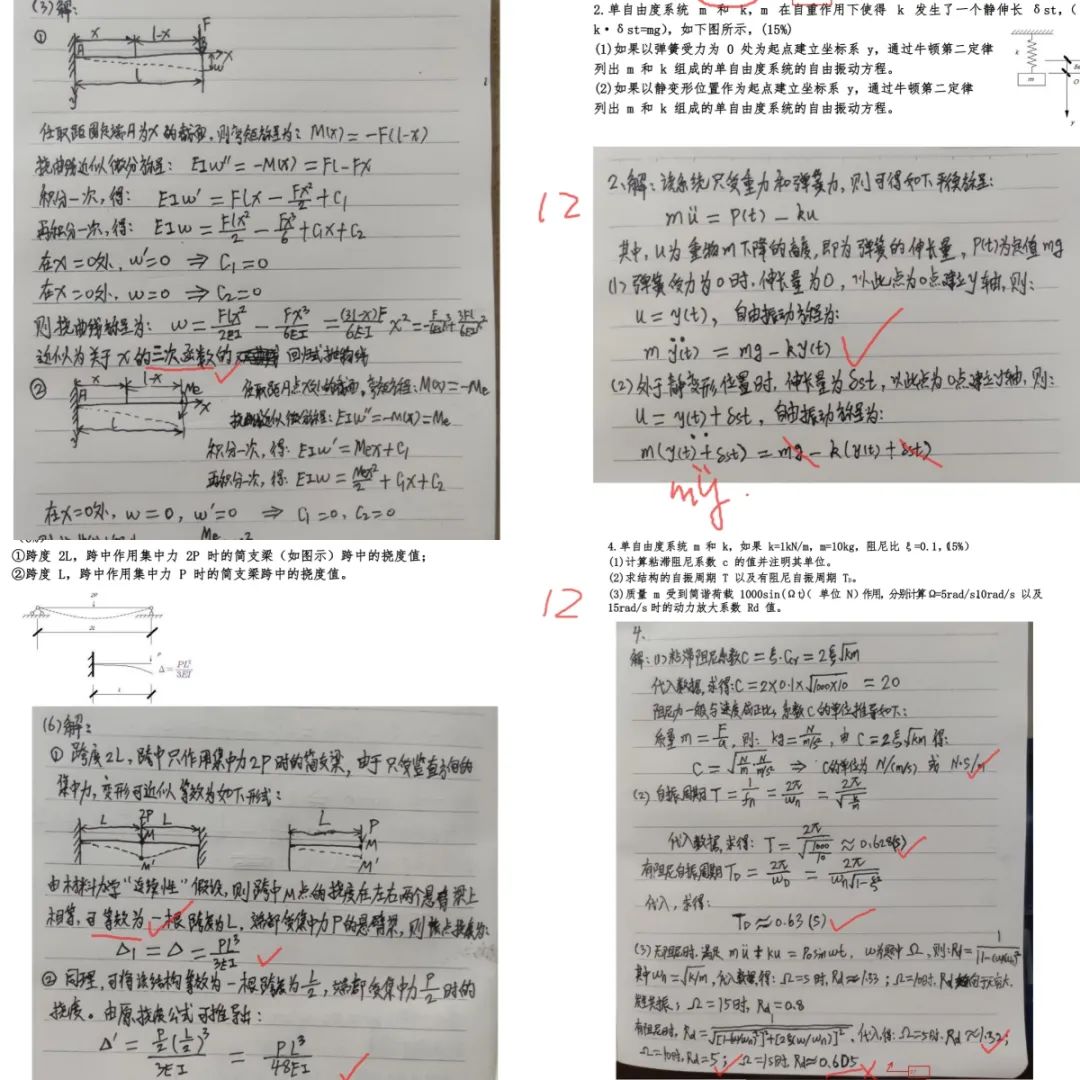 (3)解:
①
x
l-x
F
A
B
x
w
L
y
任取距固定端A为x的截面,则弯矩方程为: M(x)=-F(l-x)
挠曲线近似微分方程: EIw''=-M(x)=Fl-Fx
积分一次,得: EIw'=Flx-Fx²/2+C₁
再积分一次,得: EIw=Flx²/2-Fx³/6+C₁x+C₂
在x=0处, w'=0 ⇒ C₁=0
在x=0处, w=0 ⇒ C₂=0
则挠曲线方程为: w=Flx²/2EI-Fx³/6EI=(3l-x)F/6EI x²=-F/6EI x³+3Fl/6EI x²
近似为关于x的三次函数的
②
x
l-x
Me
A
x
L
y
弯矩方程: M(x)=-Me
挠曲线近似微分方程: EIw''=-M(x)=Me
积分一次,得: EIw'=Mex+C₁
再积分一次,得: EIw=Mex²/2+C₁x+C₂
在x=0处, w=0, w'=0 ⇒ C₁=0, C₂=0
①跨度 2L, 跨中作用集中力 2P 时的简支梁 (如图示) 跨中的挠度值;
②跨度 L, 跨中作用集中力 P 时的简支梁跨中的挠度值。
2P
P
Δ=PL³/3EI
(6)解:
①跨度2L,跨中只作用集中力2P时的简支梁,由于只受竖直方向的
集中力,变形可近似等效为如下形式:
L 2P L
M
M'
L
P
M
M'
由材料力学“连续性”假设,则跨中M点的挠度在左右两个悬臂梁上
相等,可等效为一根跨度为L,端部受集中力P的悬臂梁,则该点挠度为:
Δ₁=Δ=PL³/3EI
②同理,可将该结构等效为一根跨度为L/2,端部受集中力P/2时的
挠度。由原挠度公式可推导出:
Δ'=P/2(L/2)³/3EI=PL³/48EI
2.单自由度系统 m 和 k,m 在自重作用下使得 k 发生了一个静伸长 δst,(
k·δst=mg), 如下图所示, (15%)
(1)如果以弹簧受力为 0 处为起点建立坐标系 y, 通过牛顿第二定律
列出 m 和 k 组成的单自由度系统的自由振动方程。
(2)如果以静变形位置作为起点建立坐标系 y, 通过牛顿第二定律
列出 m 和 k 组成的单自由度系统的自由振动方程。
k
m
12
2、解:该系统只受重力和弹簧力,则可得如下平衡方程:
mü=P(t)-ku
其中,u为重物m下降的高度,即为弹簧的伸长量,P(t)为定值mg
(1)弹簧受力为0时,伸长量为0,以此点为0点建立y轴,则:
u=y(t),自由振动方程为:
mÿ(t)=mg-ky(t)
(2)处于静变形位置时,伸长量为δst,以此点为0点建立y轴,则:
u=y(t)+δst,自由振动方程为:
m(y(t)+δst)̈=mg-k(y(t)+δst)
mÿ.
4.单自由度系统 m 和 k, 如果 k=1kN/m, m=10kg, 阻尼比 ξ=0.1,(15%)
(1)计算粘滞阻尼系数 c 的值并注明其单位。
(2)求结构的自振周期 T 以及有阻尼自振周期 T_D。
(3)质量 m 受到简谐荷载 1000sin(Ωt)( 单位 N)作用, 分别计算 Ω=5rad/s10rad/s 以及
15rad/s 时的动力放大系数 Rd 值。
12
4、
解:(1)粘滞阻尼系数C=ξ·Ccr=2ξ√km
代入数据,求得:C=2×0.1×√1000×10 =20
阻尼力一般与速度成正比,系数C的单位推导如下:
质量m=F/a,则: kg=N/m/s²,由C=2ξ√km得:
C=√N/m·N/m/s² ⇒ C的单位为 N/(m/s) 或 N·S/m
(2)自振周期T=1/fn=2π/ωn=2π/√k/m
代入数据,求得: T=2π/√1000/10≈0.628(s)
有阻尼自振周期T_D=2π/ω_D=2π/ωn√1-ξ²
代入,求得:
T_D≈0.63(S)
(3)无阻尼时,满足 mü+ku=P₀sinωt, ω为题中Ω,则:Rd=1/|1-(ω/ωn)²|
其中ωn=√k/m,代入数据,得:Ω=5时,Rd≈1.33;Ω=10时,Rd趋于无穷大,
发生共振;Ω=15时,Rd=0.8
有阻尼时,Rd=1/√[1-(ω/ωn)²]²+[2ξ(ω/ωn)]²,代入,得:Ω=5时,Rd≈1.32;
Ω=10时,Rd=5;Ω=15时,Rd≈0.605